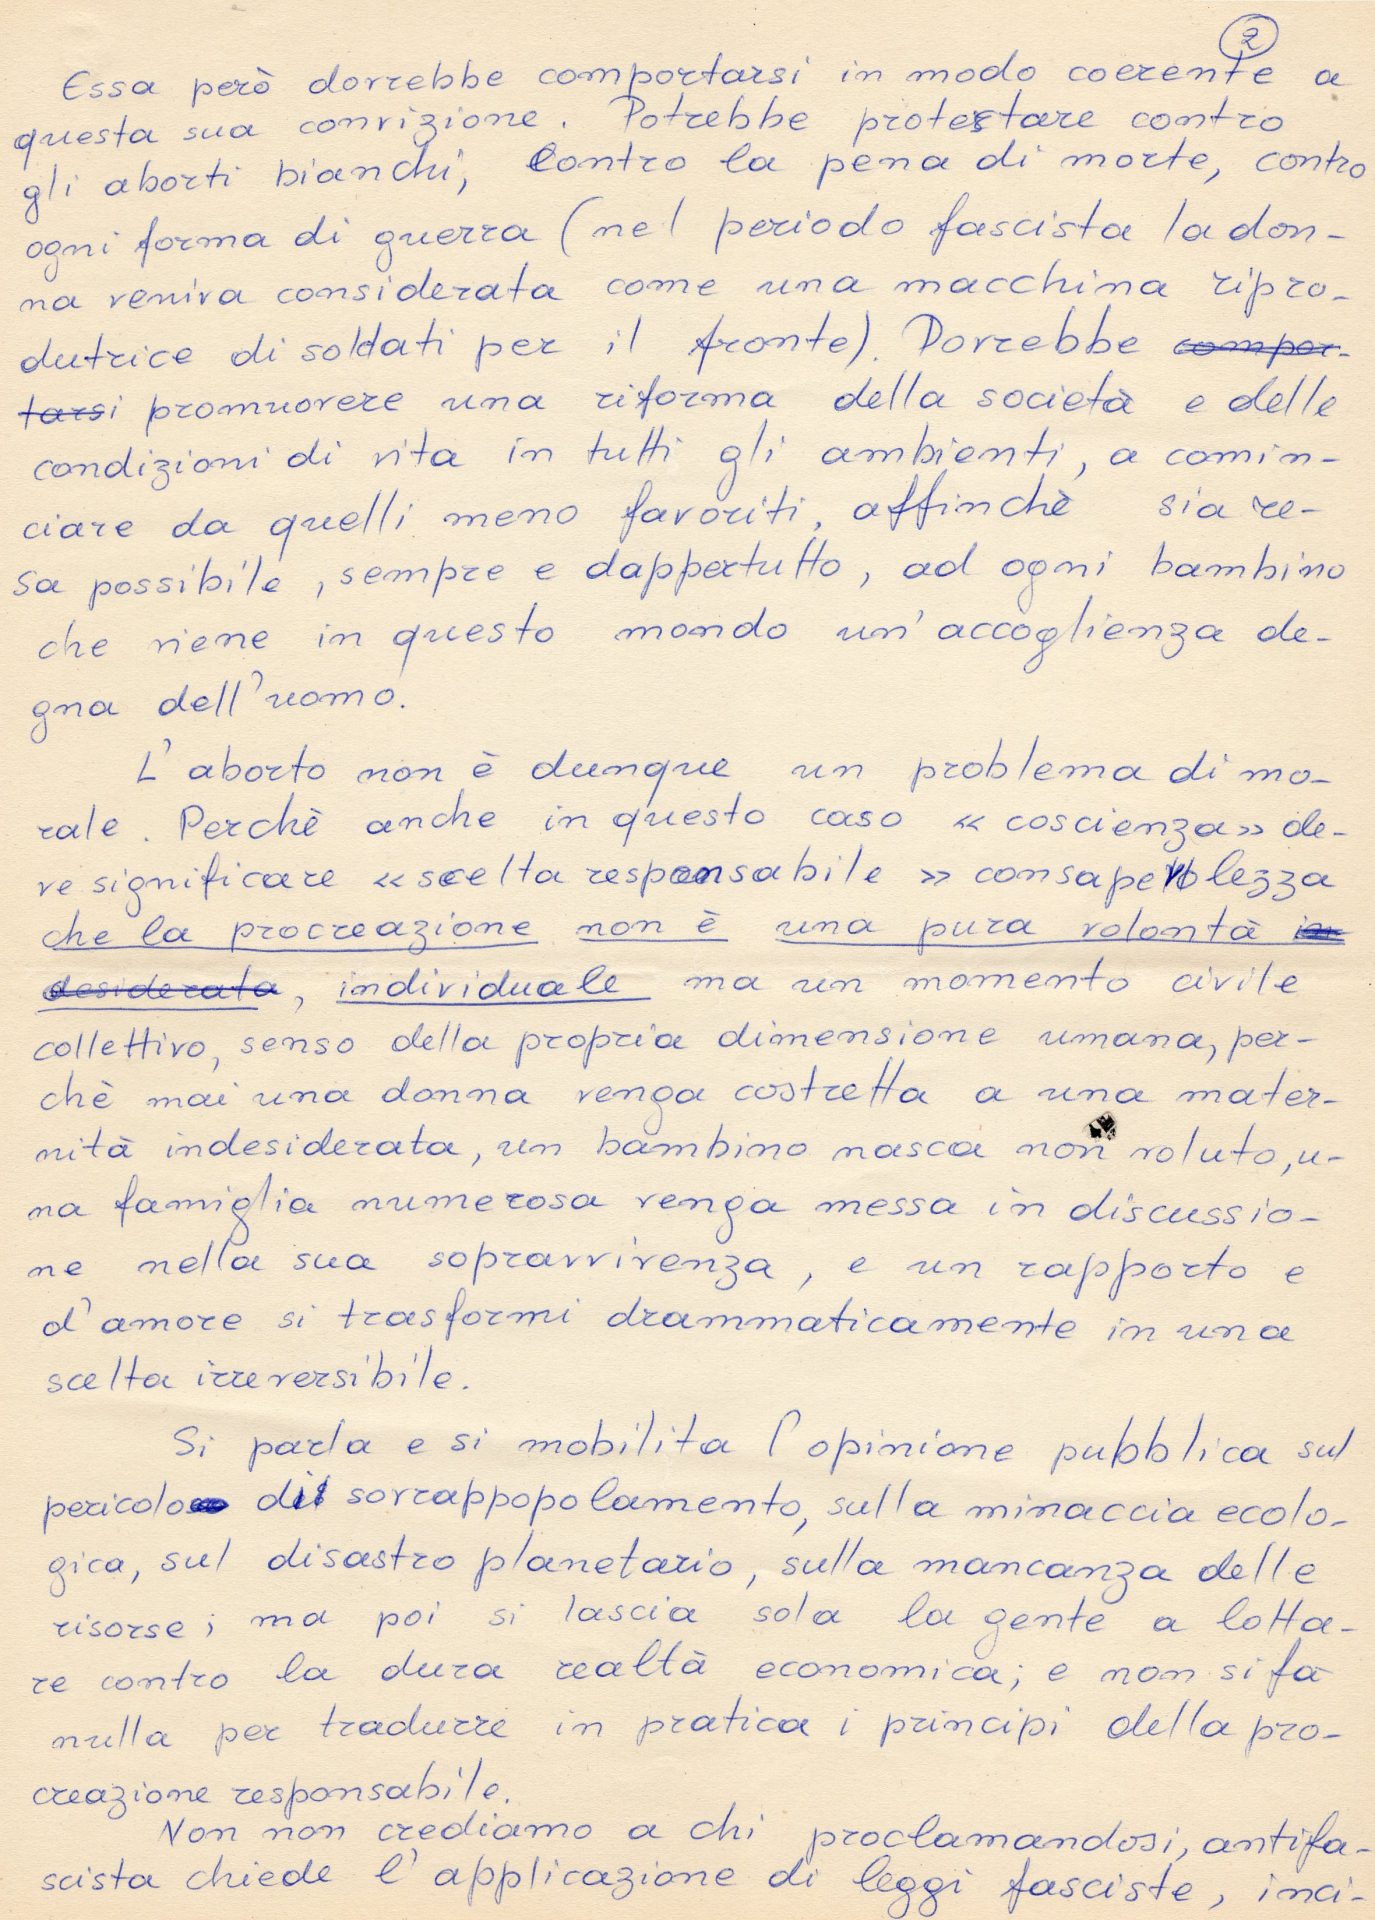 2
Essa però dovrebbe comportarsi in modo coerente a
questa sua convizione. Potrebbe protestare contro
gli aborti bianchi, contro la pena di morte, contro
ogni forma di guerra (nel periodo fascista la don-
na veniva considerata come una macchina ripro-
dutrice di soldati per il fronte). Dovrebbe compor-
tarsi promuovere una riforma della società e delle
condizioni di vita in tutti gli ambienti, a comin-
ciare da quelli meno favoriti, affinchè sia re-
sa possibile, sempre e dappertutto, ad ogni bambino
che viene in questo mondo un'accoglienza de-
gna dell'uomo.
L'aborto non è dunque un problema di mo-
rale. Perchè anche in questo caso « coscienza» de-
ve significare « scelta responsabile » consapevolezza
che la procreazione non è una pura volontà in
desiderata, individuale ma un momento civile
collettivo, senso della propria dimensione umana, per-
chè mai una donna venga costretta a una mater-
nità indesiderata, un bambino nasca non voluto, u-
na famiglia numerosa venga messa in discussio-
ne nella sua sopravvivenza, e un rapporto e
d'amore si trasformi drammaticamente in una
scelta irreversibile.
Si parla e si mobilita l'opinione pubblica sul
pericolo di sovrappopolamento, sulla minaccia ecolo-
gica, sul disastro planetario, sulla mancanza delle
risorse; ma poi si lascia sola la gente a lotta-
re contro la dura realtà economica; e non si fà
nulla per tradurre in pratica i principi della pro-
creazione responsabile.
Non non crediamo a chi proclamandosi, antifa-
scista chiede l'applicazione di leggi fasciste, inci-